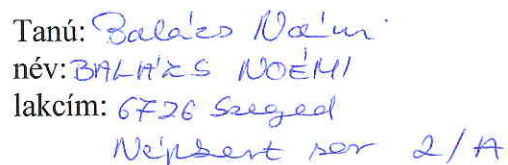 Tanú: Balázs Noémi
név: BALÁZS NOÉMI
lakcím: 6726 Szeged
Népkert sor 2/A